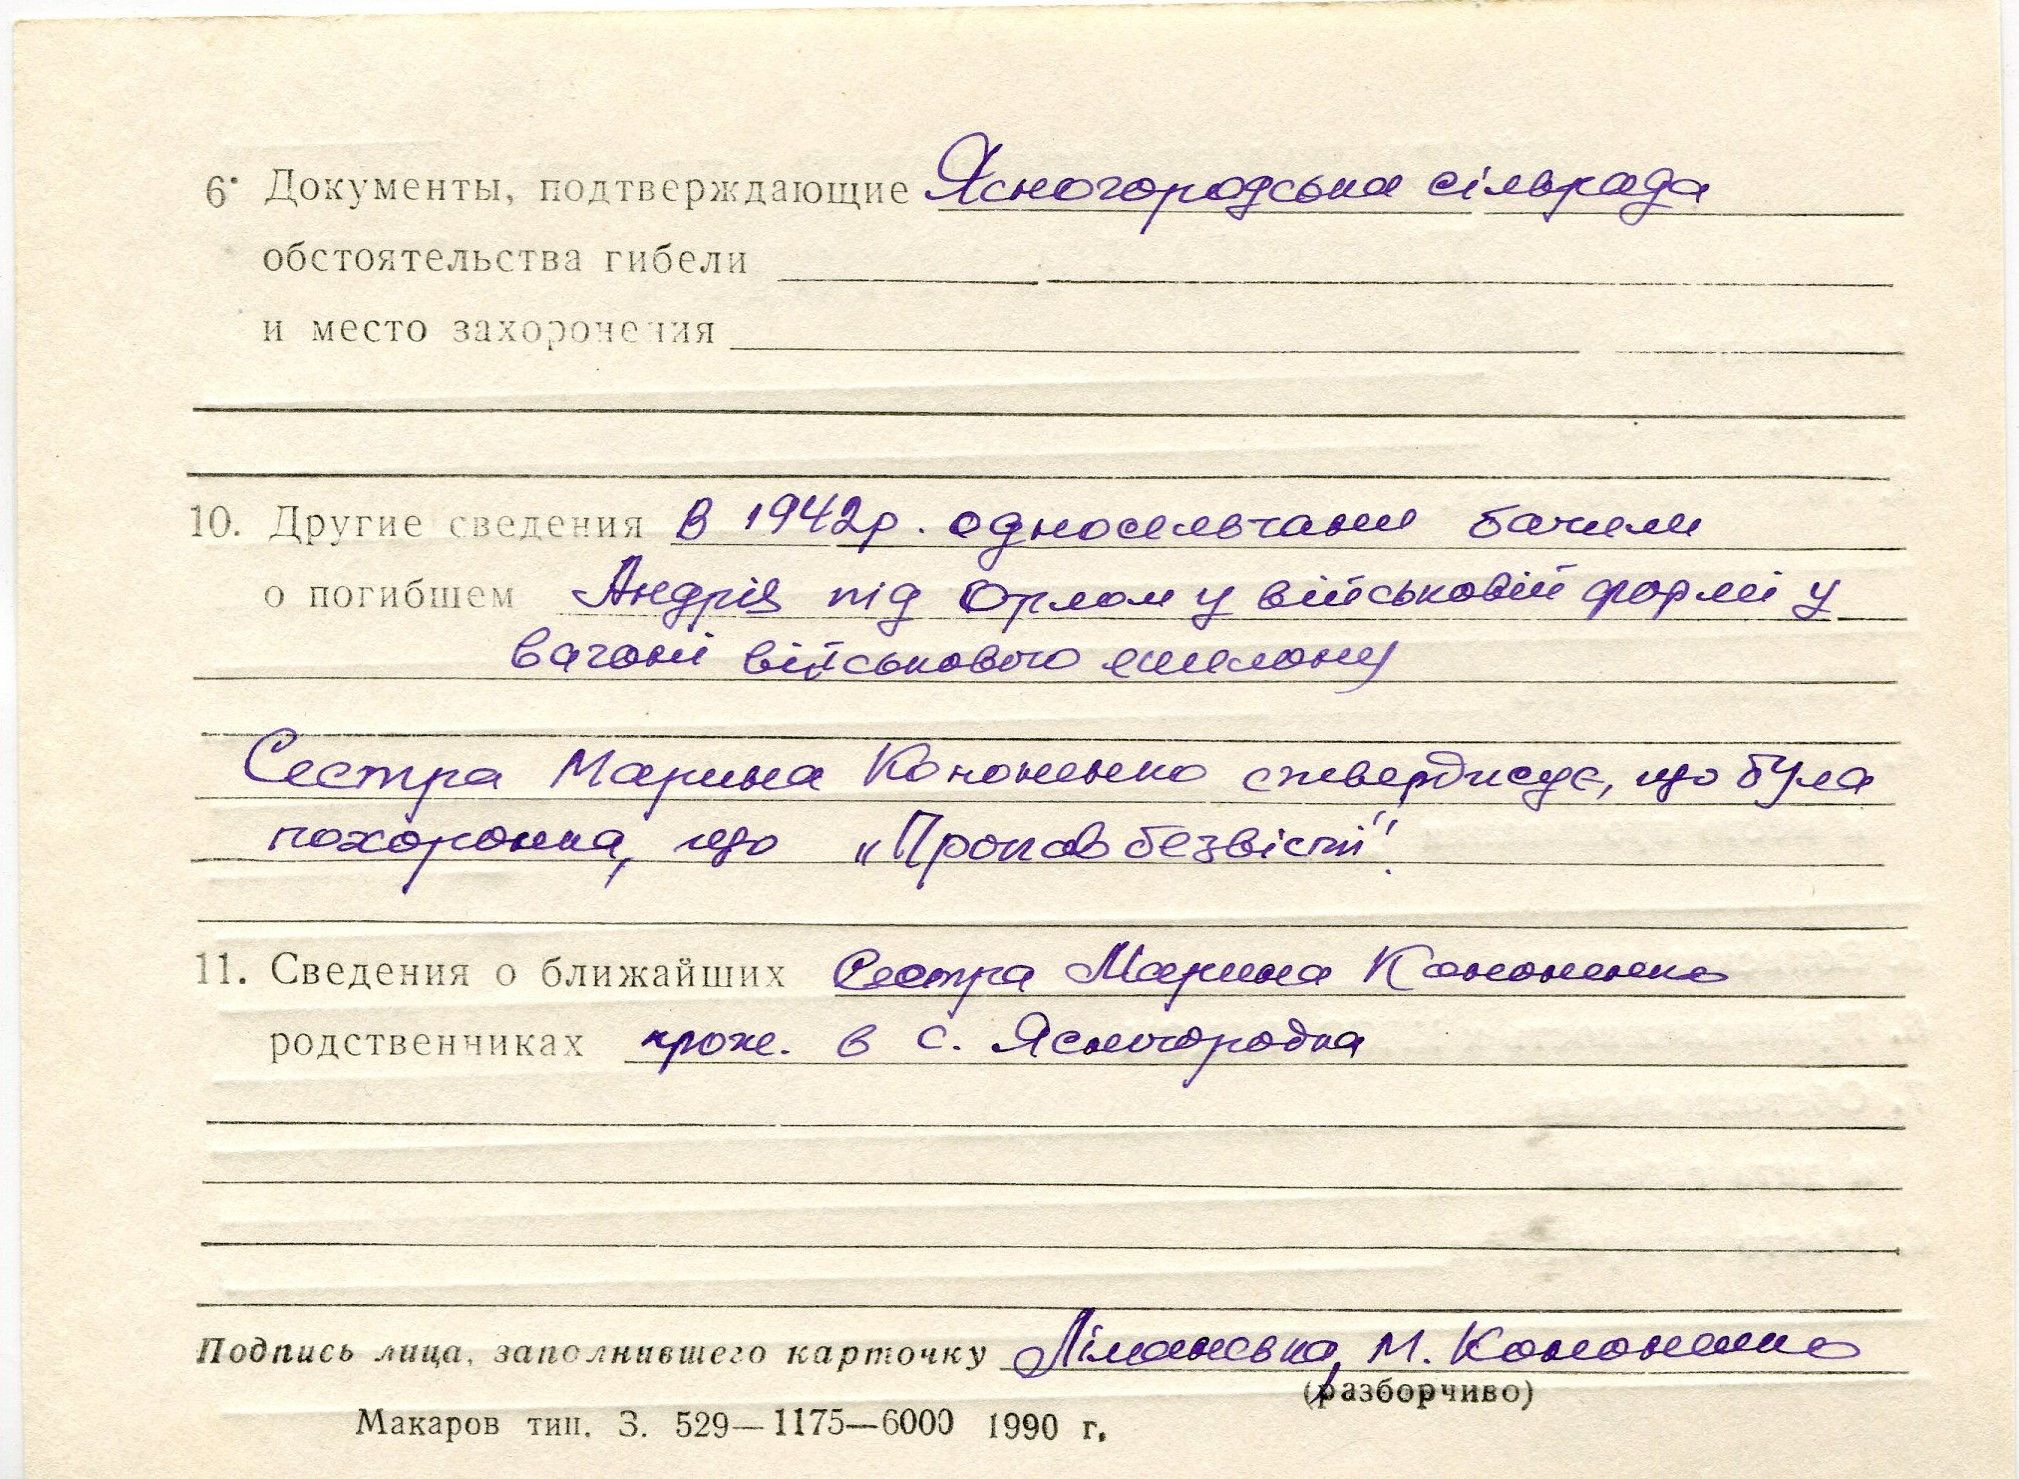 6. Документы, подтверждающие Ясногородська сільрада
обстоятельства гибели
и место захоронения
10. Другие сведения В 1942р. односельчани бачили
о погибшем Андрія під Орлом у військовій формі у
вагоні військового ешелону
Сестра Марина Кононенко стверджує, що була
похоронка, що „Пропав безвісти".
11. Сведения о ближайших Сестра Марина Кононенко
родственниках прож. в с. Ясногородка
Подпись лица, заполнившего карточку Ліманська, М. Кононенко
(разборчиво)
Макаров тип. З. 529—1175—6000 1990 г.